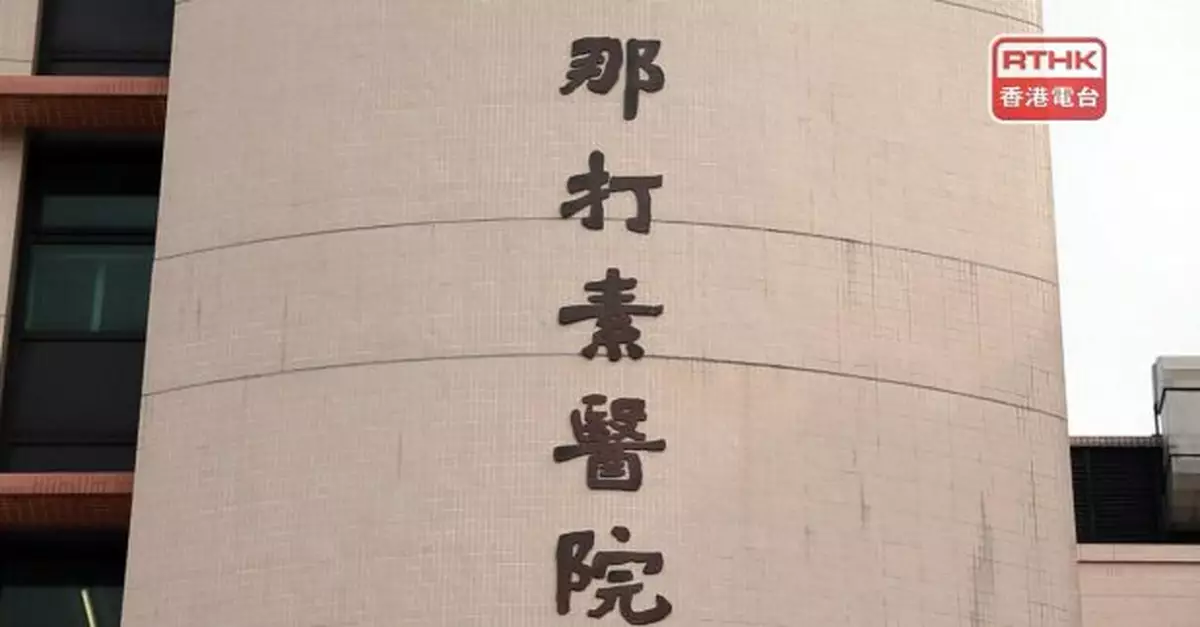 那打素醫院
RTHK
香港電台